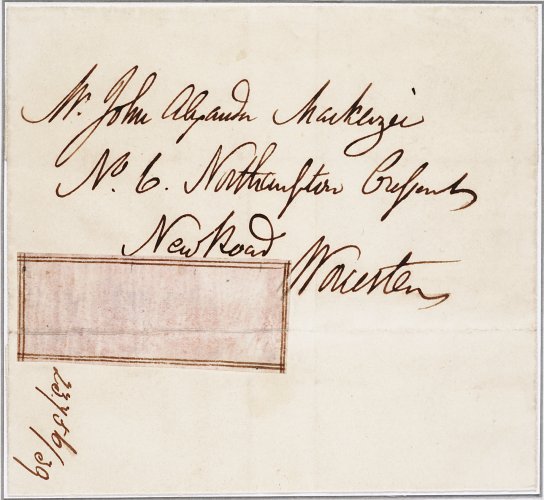 Mr. John Alexander Mackenzie
No. 6. Northampton Cresent
New Road
Worcester